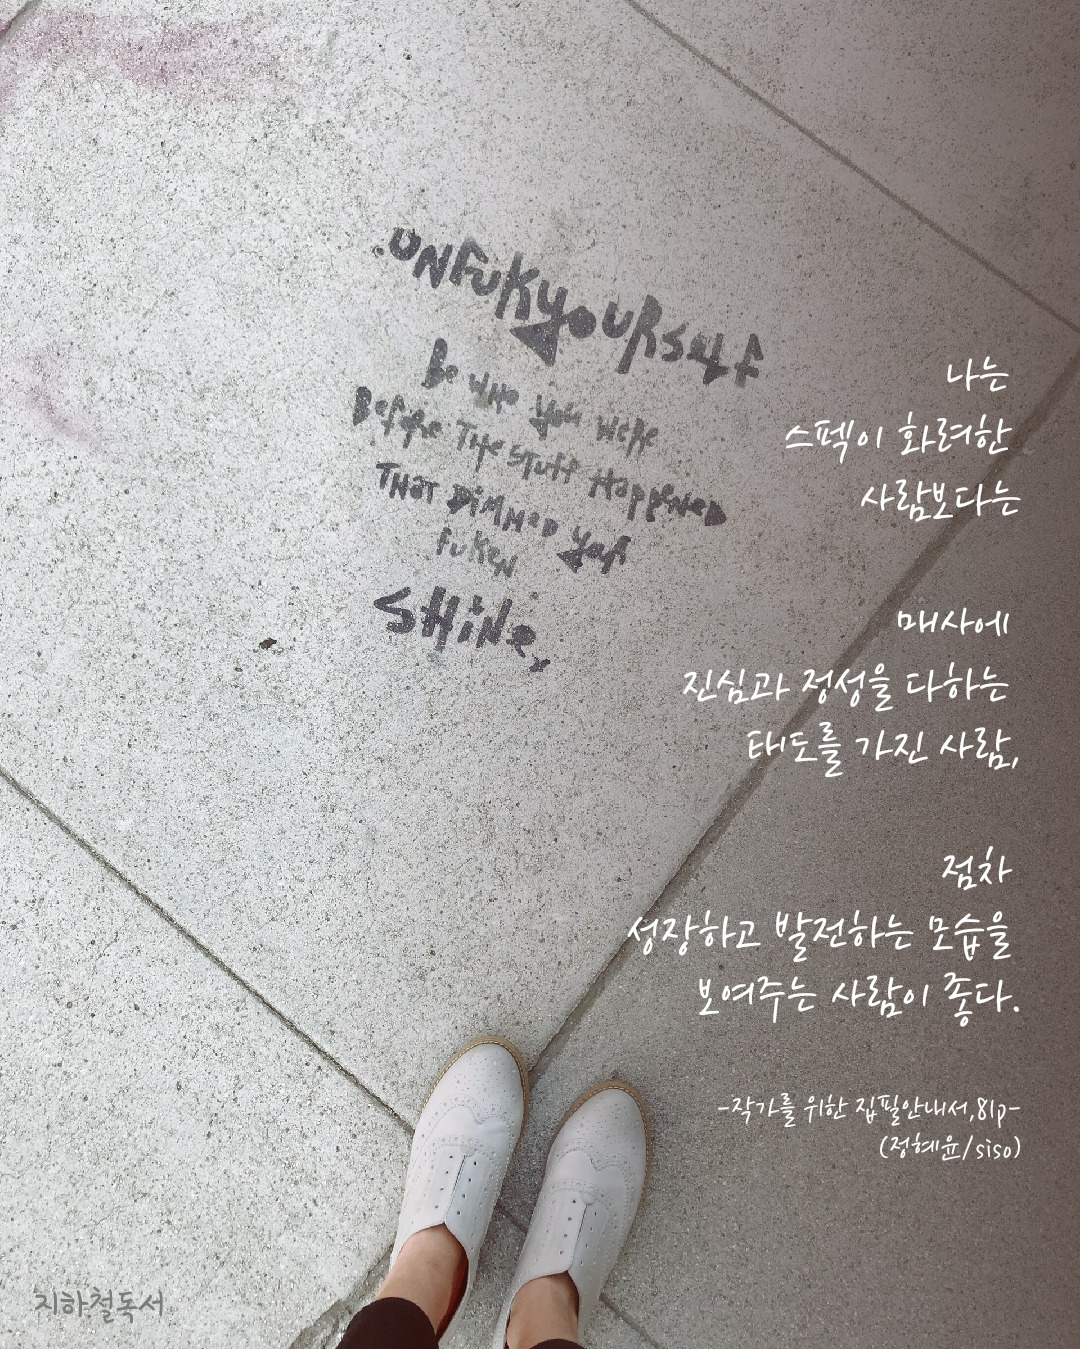 .UNFUKYOURSELF
Be WHO YOU WERE
BEFORE THE STUFF HAPPENED
THAT DIMMED YOUR
FUKEN
SHINE,
나는
스펙이 화려한
사람보다는
매사에
진심과 정성을 다하는
태도를 가진 사람,
점차
성장하고 발전하는 모습을
보여주는 사람이 좋다.
-작가를 위한 집필안내서,81p-
(정혜윤/siso)
지하철독서